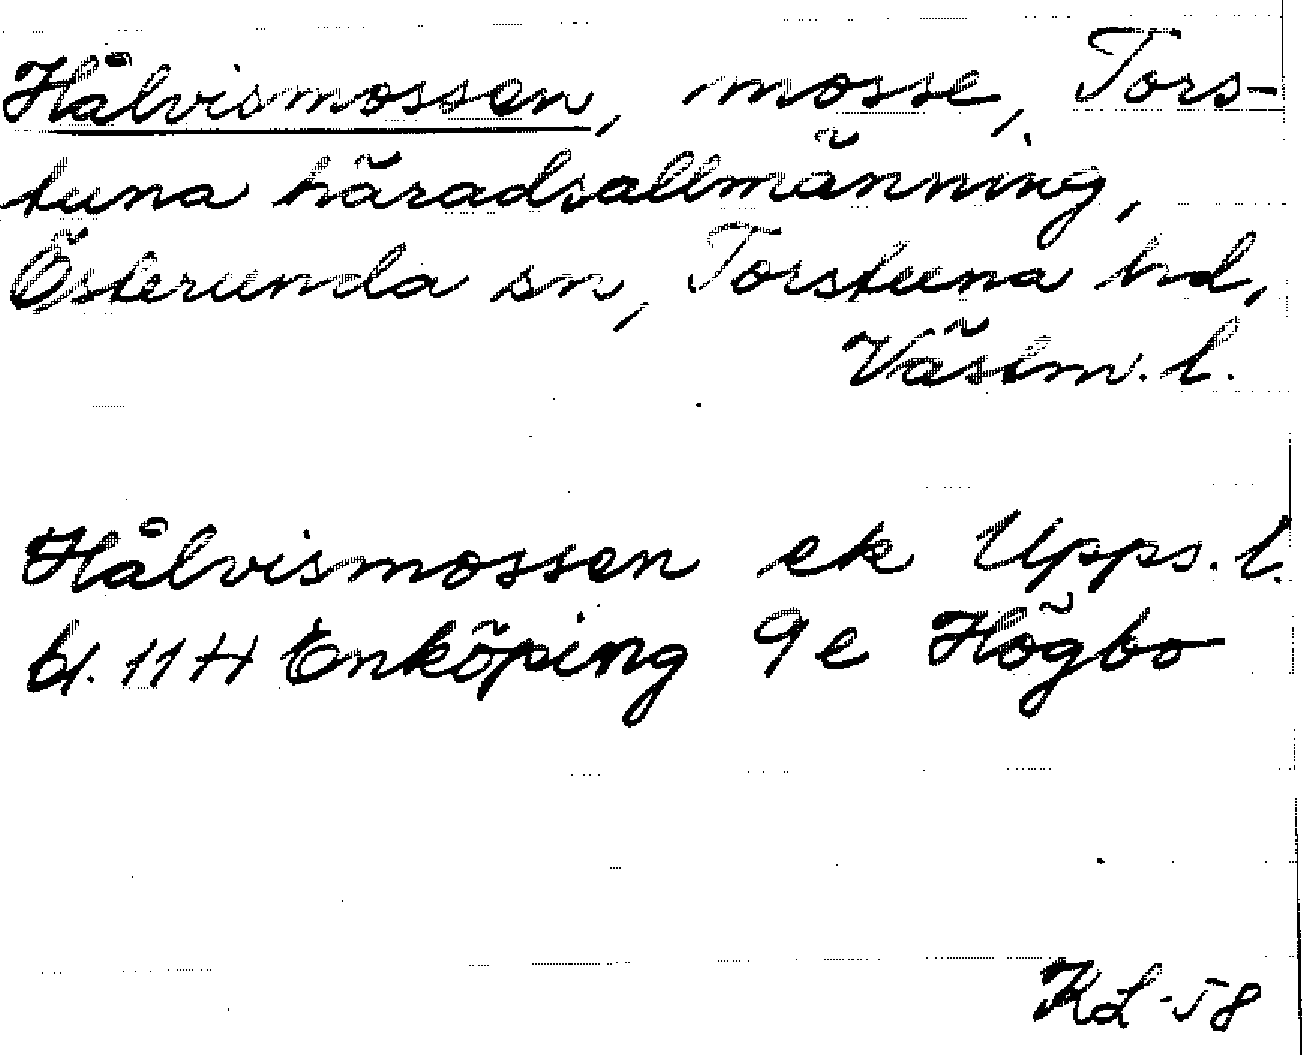 Hålvismossen, mosse, Tors-
tuna häradsallmänning,
Österunda sn, Torstuna hd,
Västm. l.
Hålvismossen ek Upps. l.
bl. 11 H Enköping 9 e Högbo
KL-58